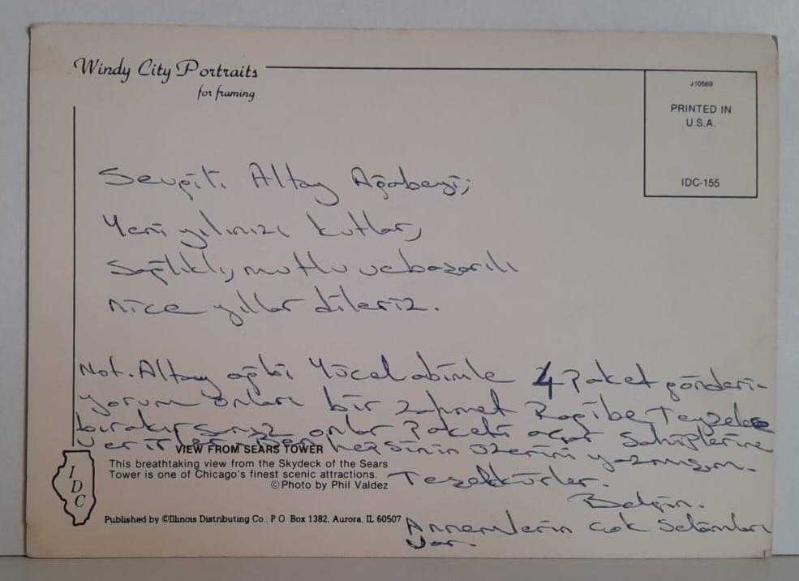 Windy City Portraits
for framing
J10569
PRINTED IN
U.S.A.
IDC-155
Sevgili Altay Ağabeyi;
Yeni yılınızı kutlar,
Sağlıklı, mutlu ve başarılı
nice yıllar dileriz.
Not. Altay ağbi Yücel abimle 4 Paket gönderi-
yorum onları bir zahmet Ragibe Teyzelere
bırakırsanız onlar Paketi açar Sahiplerine
verirler. Ben hepsinin üzerini yazmışım.
Teşekkürler.
VIEW FROM SEARS TOWER
This breathtaking view from the Skydeck of the Sears
Tower is one of Chicago's finest scenic attractions.
©Photo by Phil Valdez
IDC
Published by ©Illinois Distributing Co., P.O. Box 1382, Aurora, IL 60507
Annemlerin çok selamları
var.